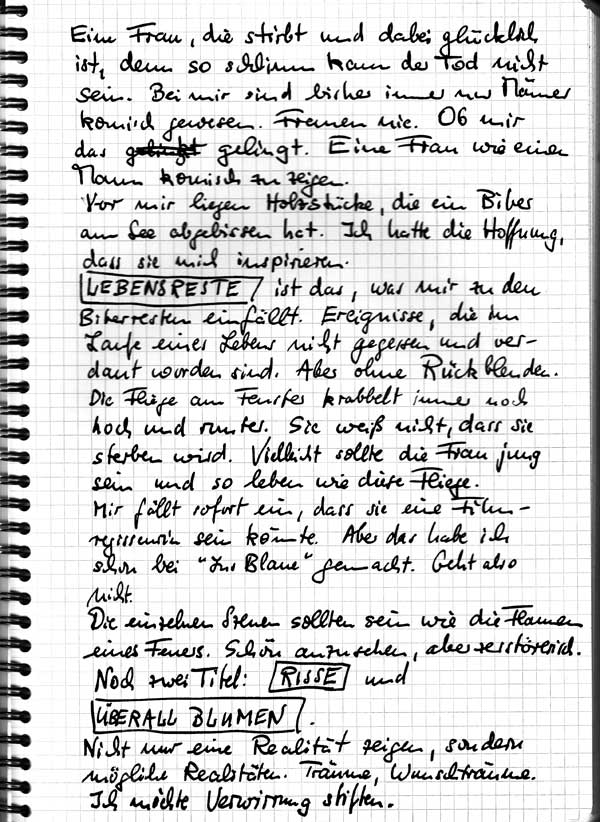 Eine Frau, die stirbt und dabei glücklich
ist, denn so schlimm kann der Tod nicht
sein. Bei mir sind bisher immer nur Männer
komisch gewesen. Frauen nie. Ob mir
das gelingt. Eine Frau wie einen
Mann komisch zu zeigen.
Vor mir liegen Holzstücke, die ein Biber
am See abgebissen hat. Ich hatte die Hoffnung,
dass sie mich inspirieren.
LEBENSRESTE ist das, was mir zu den
Biberresten einfällt. Ereignisse, die im
Laufe eines Lebens nicht gegessen und ver-
daut worden sind. Aber ohne Rückblenden.
Die Fliege am Fenster krabbelt immer noch
hoch und runter. Sie weiß nicht, dass sie
sterben wird. Vielleicht sollte die Frau jung
sein und so leben wie diese Fliege.
Mir fällt sofort ein, dass sie eine Film-
regisseurin sein könnte. Aber das habe ich
schon bei "Ins Blaue" gemacht. Geht also
nicht.
Die einzelnen Szenen sollten sein wie die Flammen
eines Feuers. Schön anzusehen, aber zerstörerisch.
Noch zwei Titel: RISSE und
ÜBERALL BLUMEN.
Nicht nur eine Realität zeigen, sondern
mögliche Realitäten. Träume, Wunschträume.
Ich möchte Verwirrung stiften.